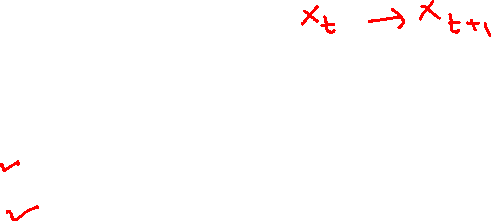 x_t → x_{t+1}
✓
✓